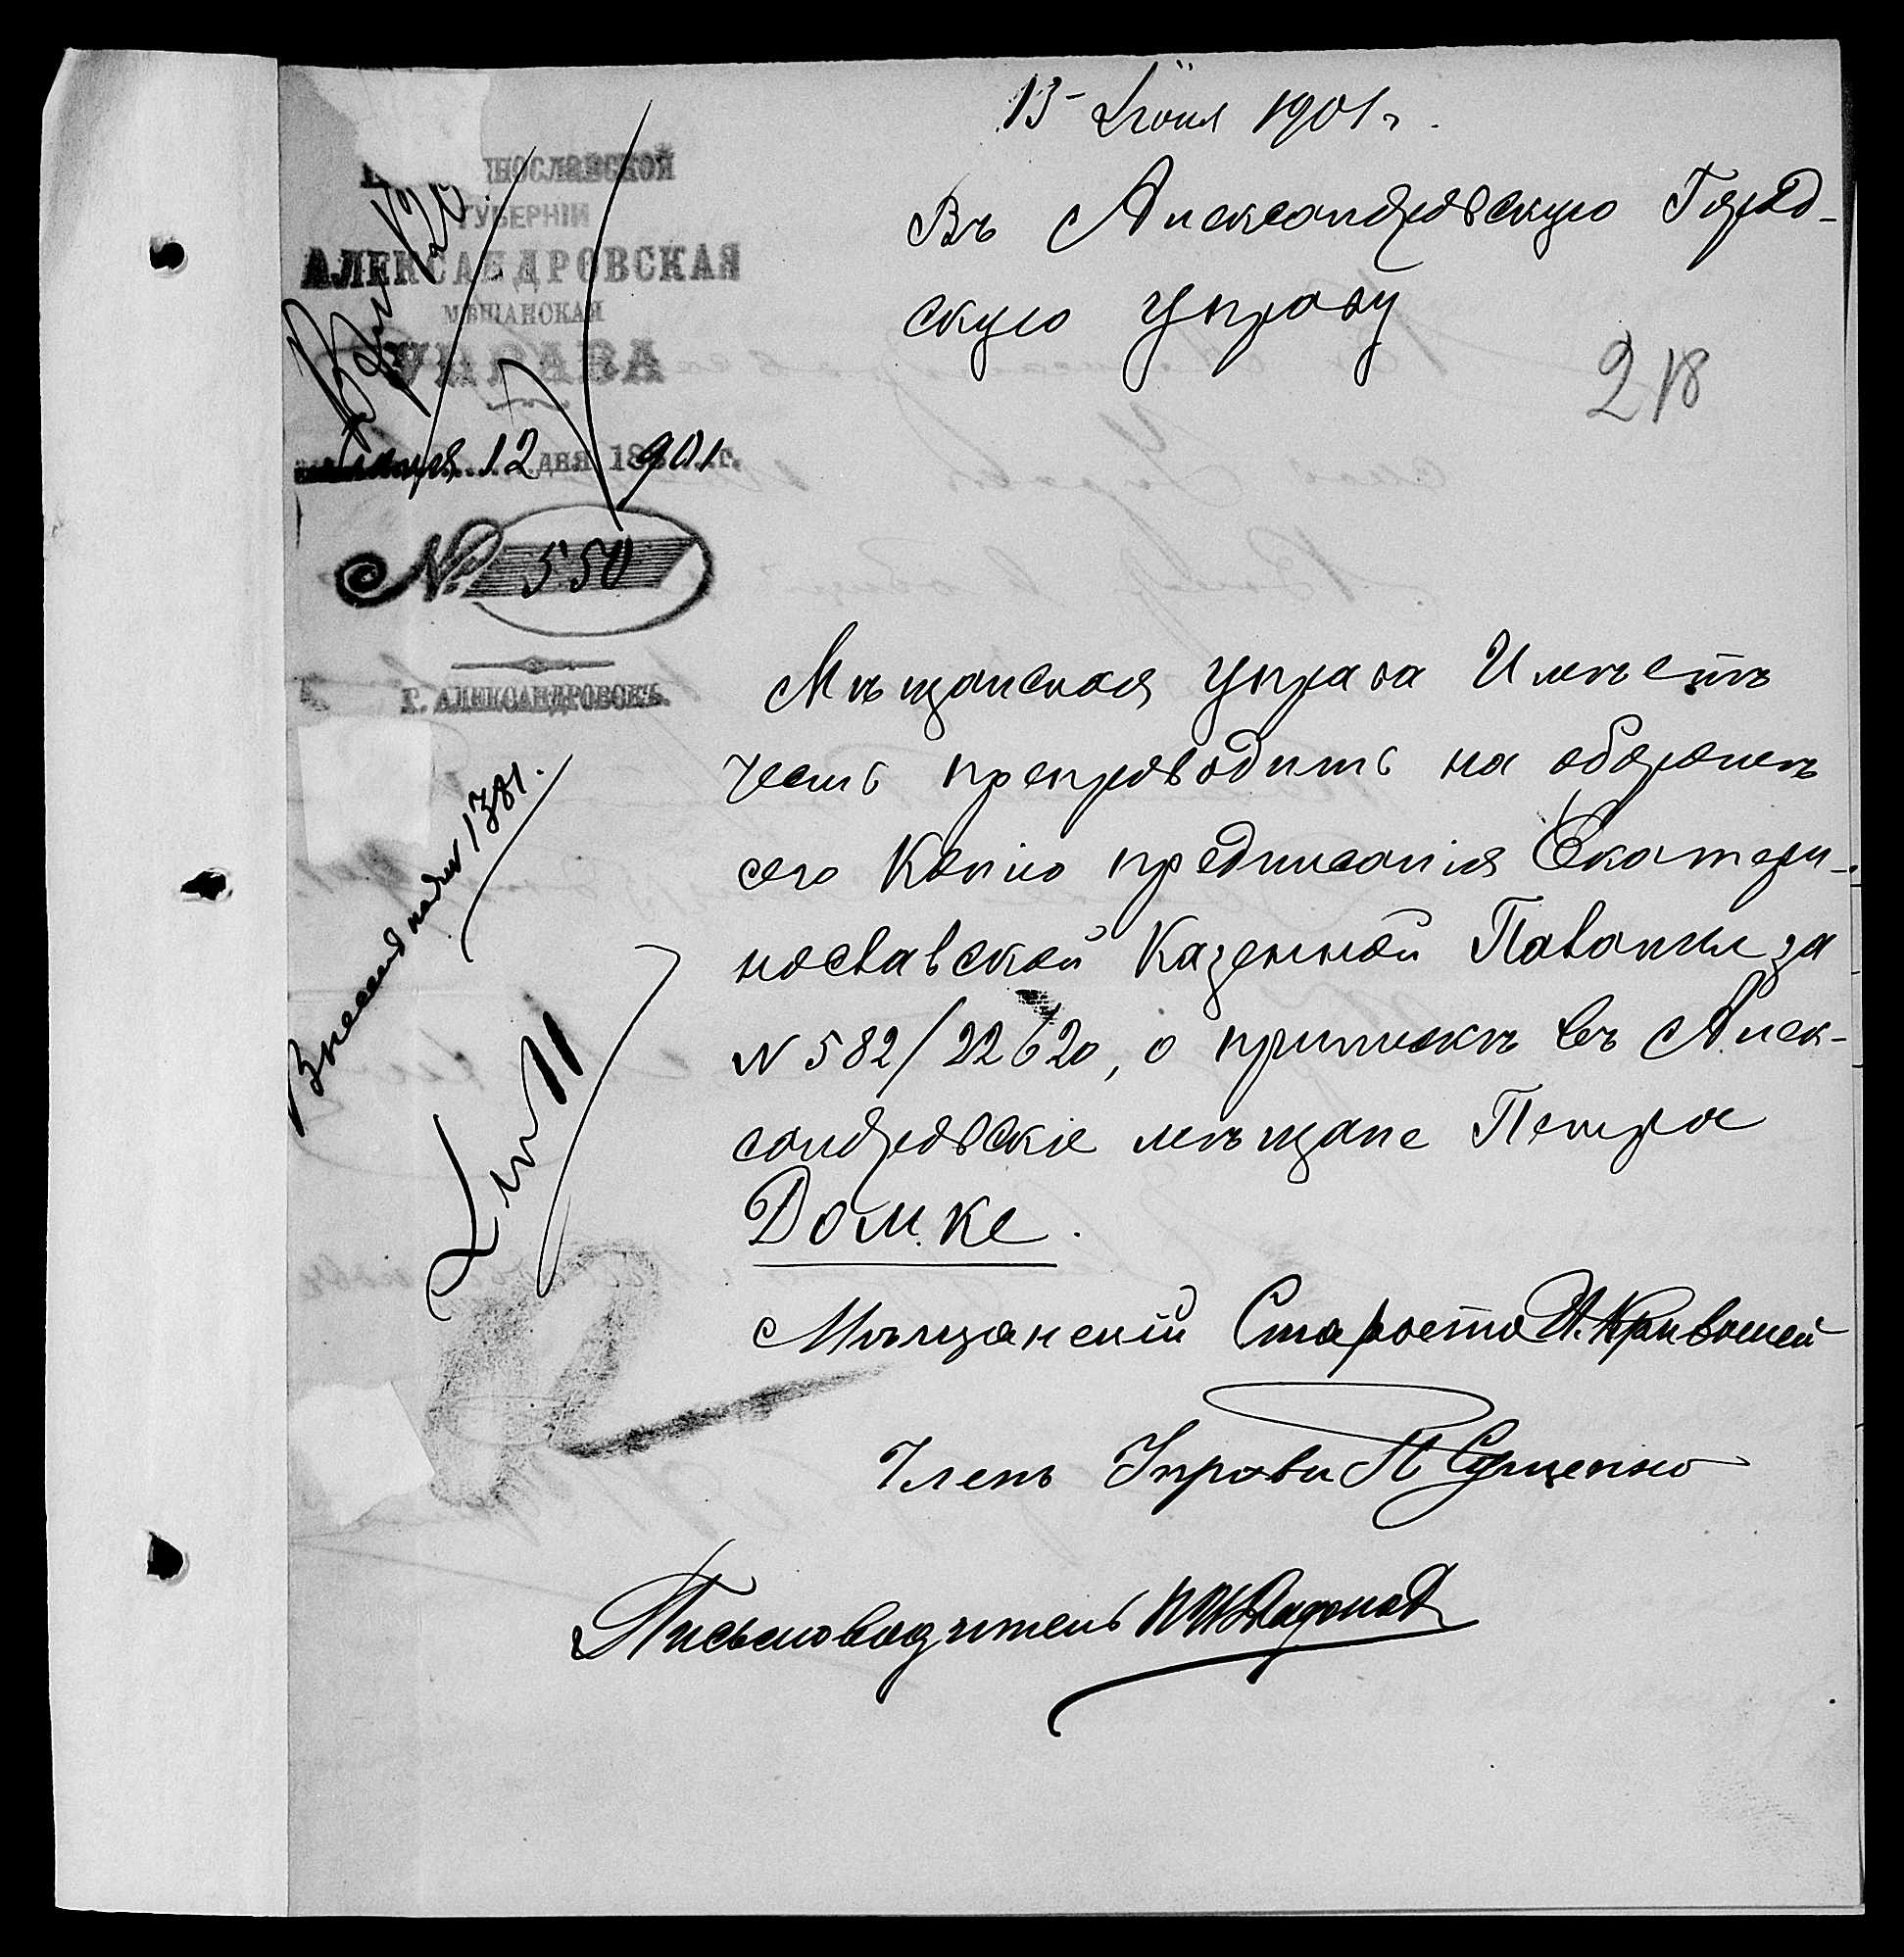 13 Июня 1901 г.
Въ Александровскую Город-
скую Управу
218
ГУБЕРНІИ
АЛЕКСАНДРОВСКАЯ
МѢЩАНСКАЯ
УПРАВА
12 дня 1901 г.
№ 550
Г. АЛЕКСАНДРОВСКЪ.
Мѣщанская Управа Имѣетъ
честь препроводить на оборотѣ
сего Копію предписанія Екатери-
нославской Казенной Палаты за
№ 582/22620, о припискѣ въ Алек-
сандровскіе мѣщане Петра
Домке.
Мѣщанскій Староста И. Кривошей
Членъ Управы П Сущенко
Письмоводитель
1381.